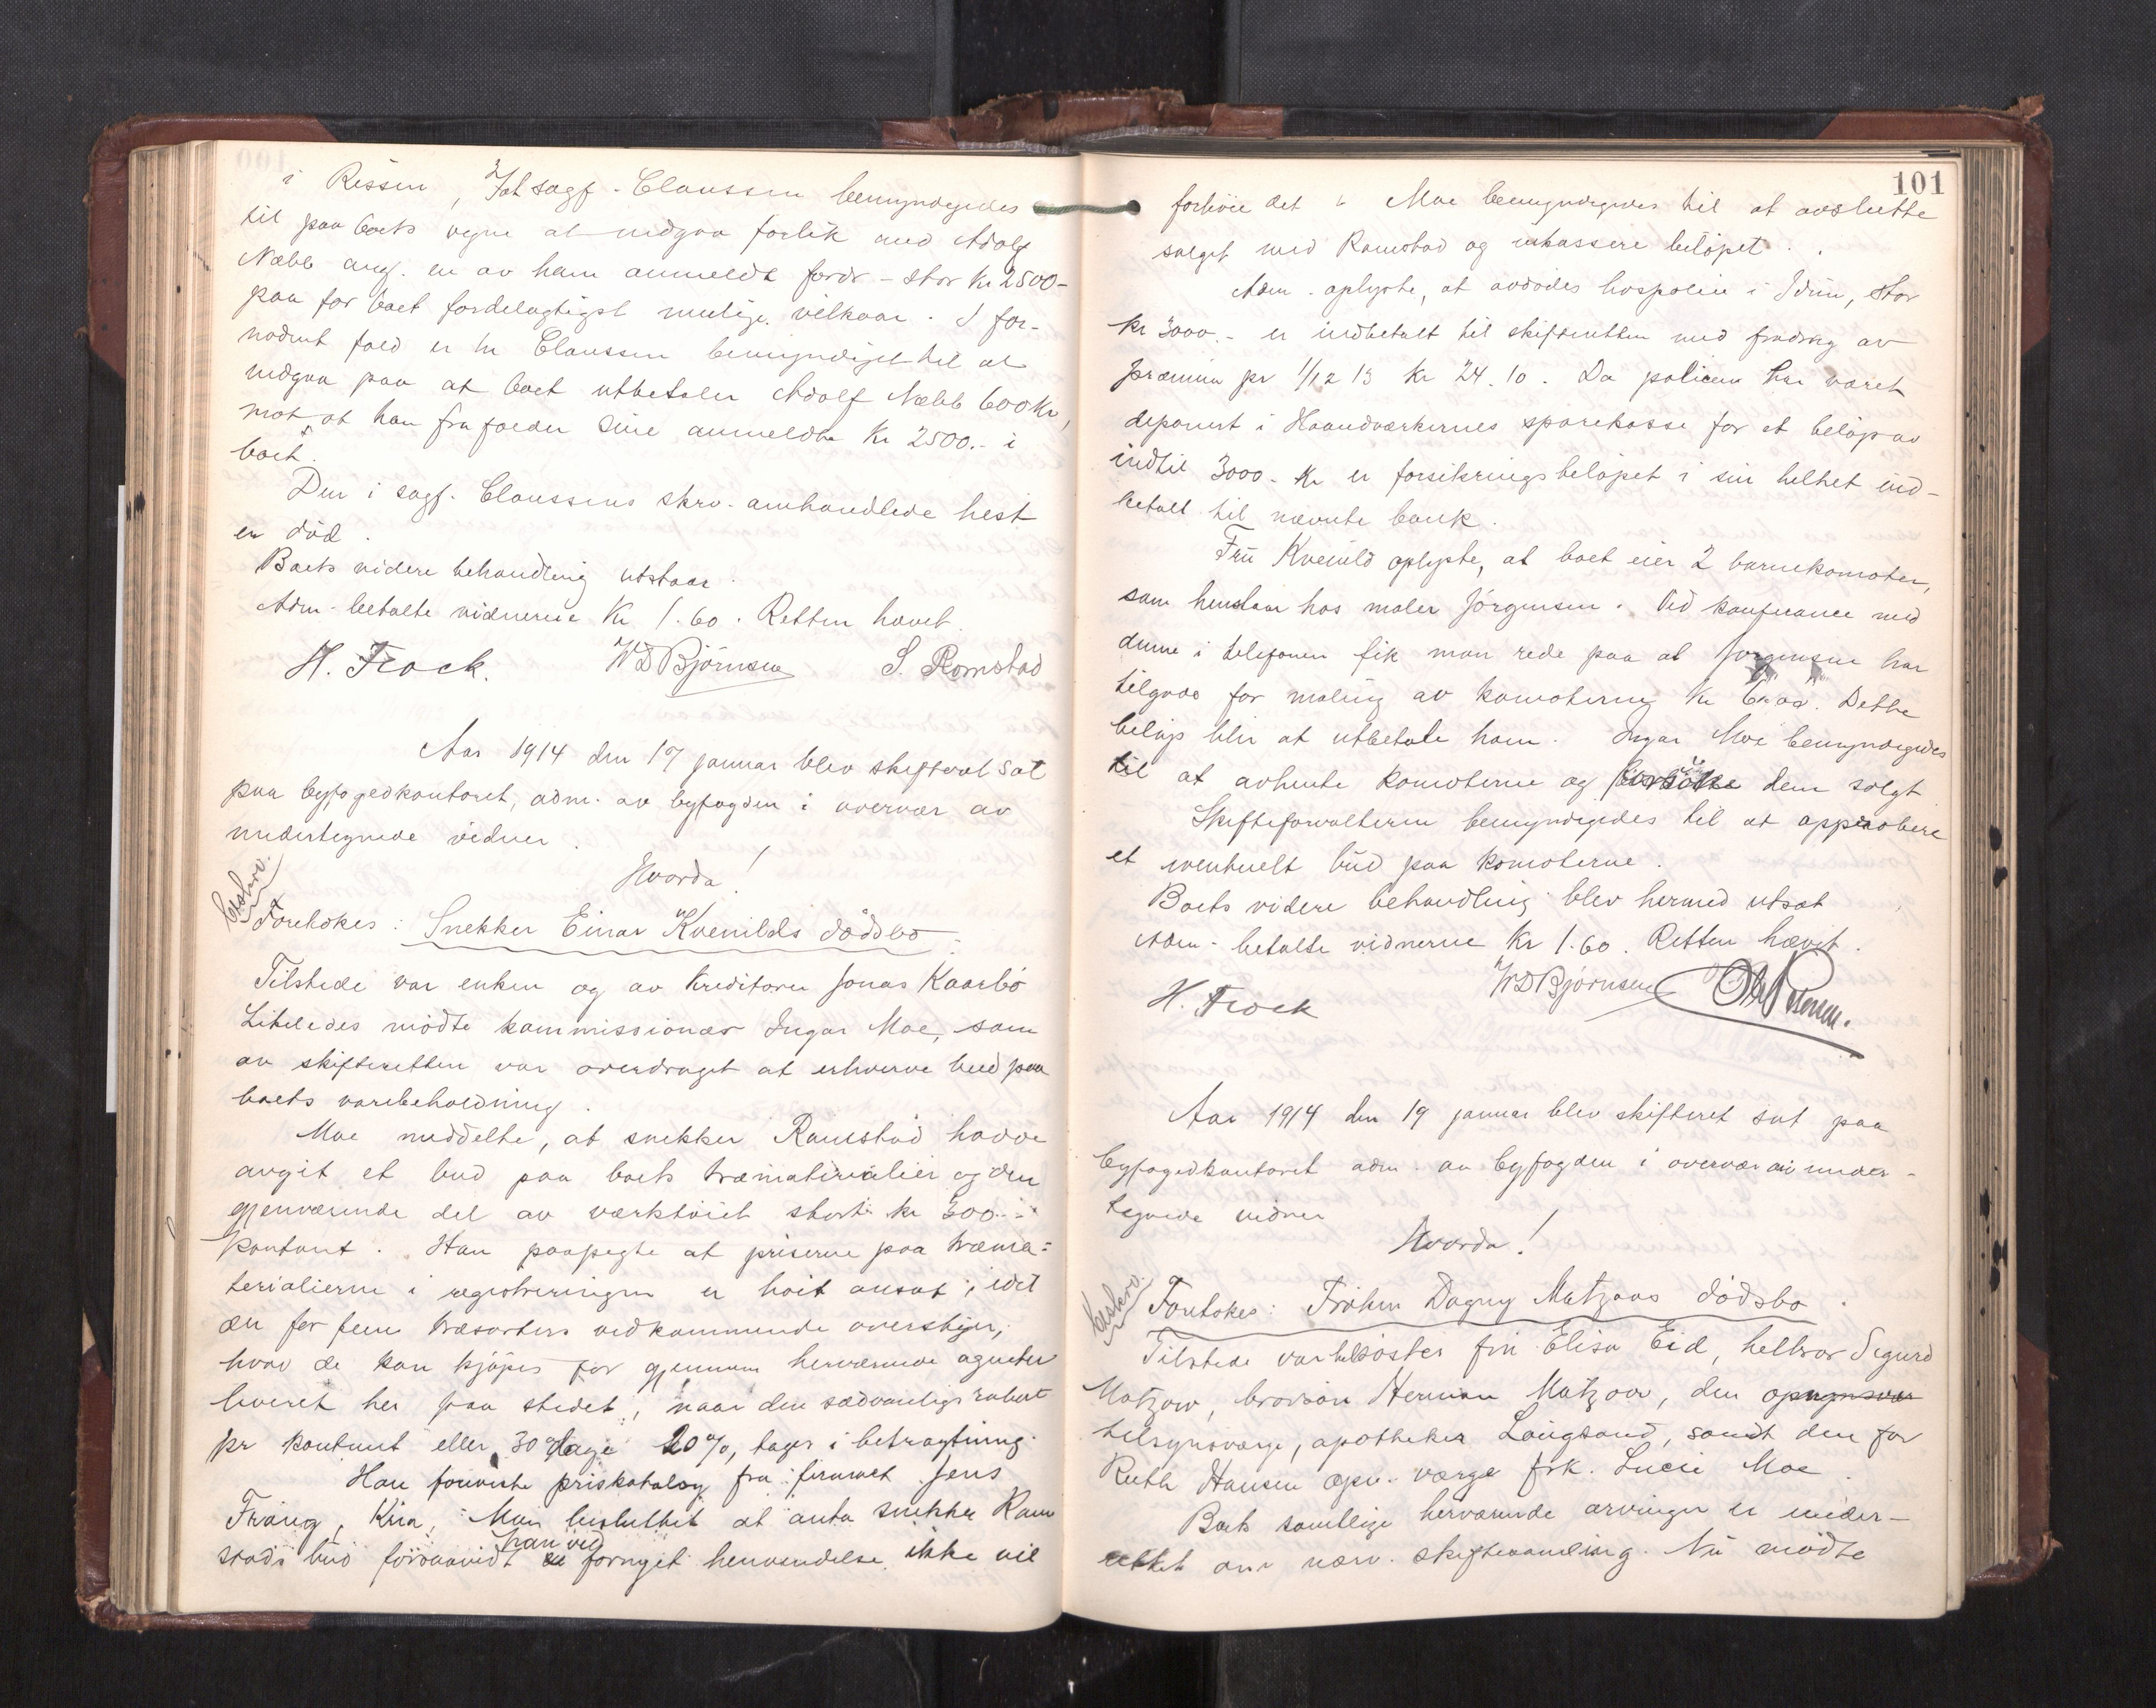 i Rissen, at sagf. Claussen bemyndigedes
til paa boets vegne at indgaa forlik med Adolf
Næbb ang. en av ham anmeldt fordr. - stor Kr 2500-
paa for boet fordelagtigst mulige vilkaar. I for-
nødent fald er hr Claussen bemyndiget til at
indgaa paa at boet utbetaler Adolf Næbb 600 Kr,
mot at han frafalder sine anmeldte Kr 2500.- i
boet.
Den i sagf. Claussens skrv. omhandlede hest
er död.
Boets videre behandling utstaar.
Adm. betalte vidnerne Kr 1.60. Retten hævet.
H. Frock. W D Björnsen S. Romstad
Aar 1914 den 17 januar blev skifteret sat
paa byfogedkontoret, adm. av byfogden i overvær av
undertegnede vidner.
Hvorda!
beskrv.
Foretokes: Snekker Einar Kvenilds dödsbo.
Tilstede var enken og av kreditorer Jonas Kaarbö
Likeledes mödte kommissionær Ingar Moe, som
av skifteretten var overdraget at erhverve bud paa
boets varebeholdning.
Moe meddelte, at snekker Ramstad havde
avgit et bud paa boets træmaterialier og den
gjenværende del av værktöiet stort kr 300.-
kontant. Han paapegte at priserne paa træma-
terialierne i registreringen er höit ansat, idet
de for fem træsorters vedkommende overstiger,
hvad de kan kjöpes for gjennem herværende agenter
leveret her paa stedet, naar den sædvanlige rabat
pr kontant eller 30 dage 20%, tages i betragtning.
Han foreviste priskatalog fra firmaet Jens
Frang, Kria. Man besluttet at anta snekker Ram
stads bud forsaavidt han ved fornyet henvendelse ikke vil
101
forhöie det. Moe bemyndigedes til at avslutte
salget med Ramstad og inkassere belöpet.
Adm. oplyste, at avdödes livspolice i Idun, stor
kr 3000.- er indbetalt til skifteretten med fradrag av
præmie pr 1/12 13 Kr 24.10. Da policen har været
deponert i Haandværkernes sparekasse for et belöp av
indtil 3000.- Kr er forsikringsbelöpet i sin helhet ind-
betalt til nævnte bank.
Fru Kvenild oplyste, at boet eier 2 barnekomoter,
som henstaar hos maler Jörgensen. Ved konferance med
denne i telefonen fik man rede paa at Jörgensen har
tilgode for maling av komoterne Kr Dette
belöp blir at utbetale ham. Ingar Moe bemyndigedes
til at avhente komoterne og dem solgt
Skifteforvalteren bemyndigedes til at approbere
et eventuelt bud paa komoterne.
Boets videre behandling blev hermed utsat
Adm. betalte vidnerne Kr 1.60. Retten hævet.
H. Frock W D Björnsen
Aar 1914 den 19 januar blev skifteret sat paa
byfogedkontoret adm. av byfogden i overvær av under-
tegnede vidner
Hvorda!
beskrv.
Foretokes: Fröken Dagny Matzows dödsbo.
Tilstede var helsöster fru Elisa Eid, helbror Sigurd
Matzow, brorsön Herman Matzow, den
tilsynsværge, apotheker Langsand, samt den for
Ruth Hansen opn. værge frk. Lucie Moe.
Boets samtlige herværende arvinger er under-
rettet om nærv. skiftesamling. Nu mödte